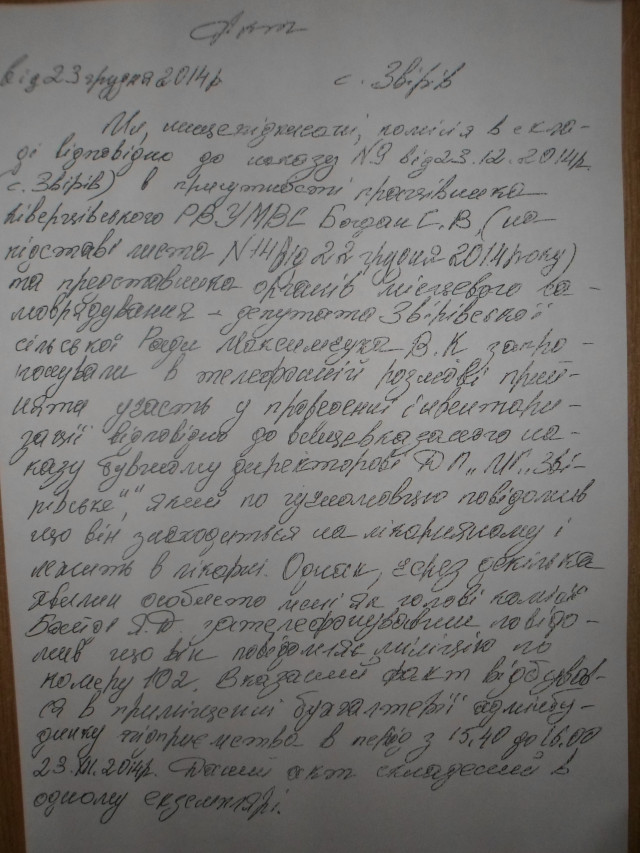 Акт
від 23 грудня 2014р с. Звірів
Ми, нищепідписані, комісія в скла-
ді відповідно до наказу №9 від 23.12.2014р.
с. Звірів) в присутності працівника
Ківерцівського РВУМВС Богдан С.В. (на
підставі листа №14 від 22 грудня 2014 року)
та представника органів місцевого са-
моврядування - депутата Звірівської
сільської Ради Максимчука В.К запро-
понували в телефонній розмові прий-
няти участь у проведенні інвентари-
зації відповідно до вищевказаного на-
казу бувшому директорові ДП "ПГ "Зві-
рівське", який по гучномовцю повідомив
що він знаходиться на лікарняному і
лежить в лікарні. Однак, через декілька
хвилин особисто мені як голові комісії
Я.Д зателефонувавши повідо-
мив що він повідомляє міліцію по
номеру 102. Вказаний факт відбував-
ся в приміщенні бухгалтерії адмінбу-
динку підприємства в період з 15.40 до 16.00
23.XII.2014р. Даний акт складений в
одному екземплярі.